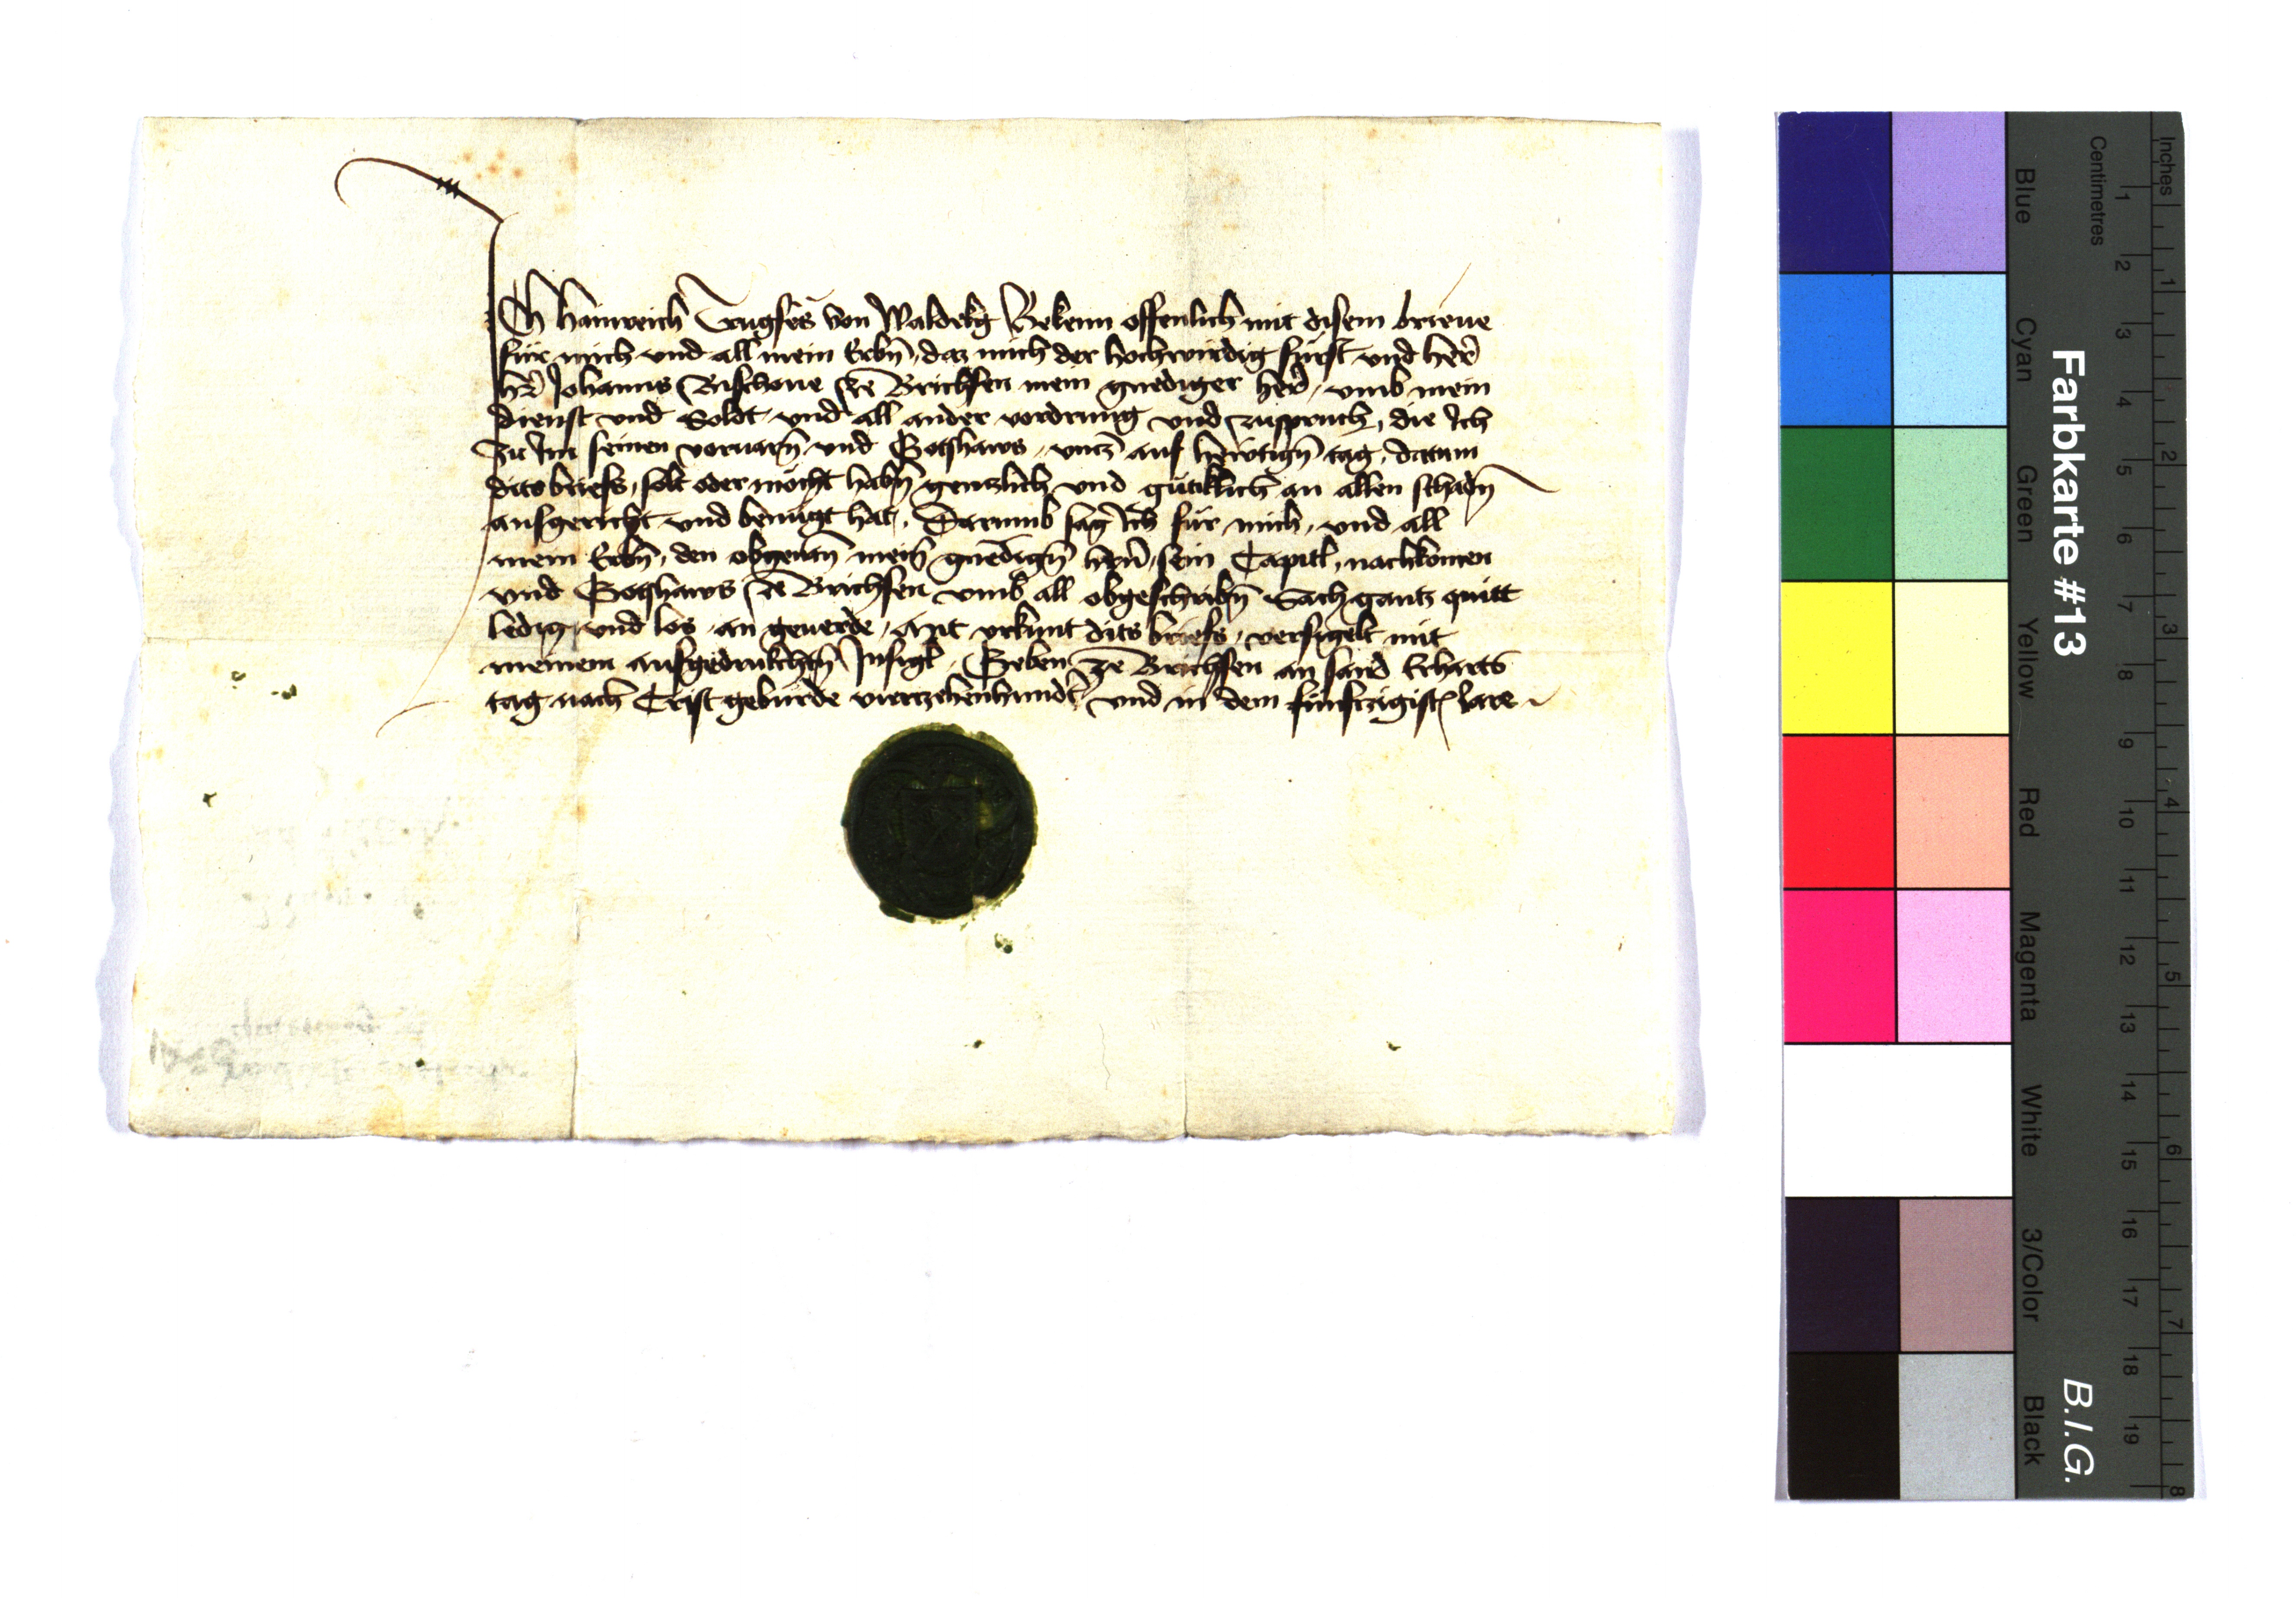 Ich Hainreich Trugsës von Waldekg Bekenn offenlich mit disem brieue
für mich vnd all mein Erbn̄, daz mich der hochwirdig fürst vnd her̄
hr̄ Johanns Bischoue ze Brichsen mein gnediger her̄, vmb mein
dienst vnd Soldt vnd all ander vordrung vnd zuspruch, die Ich
Zu Im seinen voruarn̄ vnd Gotshaws, vntz auf hewtign̄ tag, datum
dits briefs, solt oder möcht habn̄ gentzlich vnd gütiklich an allen schadn̄
ausgericht vnd benügt hat, Darumb sag Ich für mich, vnd all
mein Erbn̄, den obgenan̄ mein̄ gnedign̄ hrn̄, sein Capitl, nachkomen
vnd Gotshaws ze Brichsen vmb all obgeschribn̄ Sach gantz quitt
ledig vnd los, an geuerde, Mit vrkunt dits briefs, versigelt mit
meinem aufgedrukchtn̄ Insigl, Geben ze Brichsen an sand Erharts
tag nach Crist geburde viertzehenhundt̄ vnd in dem fünftzigistn̄ Jare
Farbkarte #13
B.I.G.
Inches 1 2 3 4 5 6 7 8
Centimetres 1 2 3 4 5 6 7 8 9 10 11 12 13 14 15 16 17 18 19
Blue Cyan Green Yellow Red Magenta White 3/Color Black